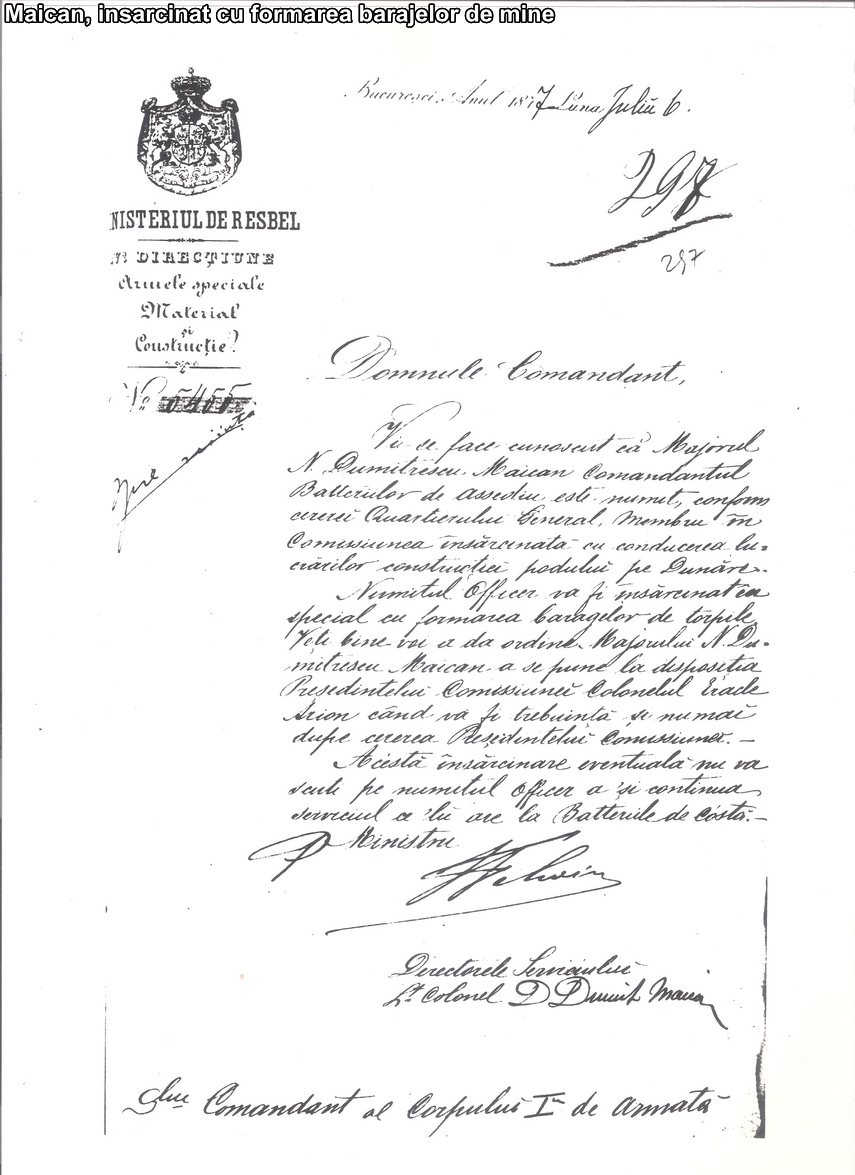 Maican, insarcinat cu formarea barajelor de mine
Bucuresci, Anul 1877 Luna Juliu 6.
297
297
NISTERIUL DE RESBEL
DIRECȚIUNE
Armele speciale
Material
și
Construcție
No 5455
Domnule Comandant,
Vi se face cunoscut că Majorul
N. Dumitrescu Maican Comandantul
Batteriilor de assediu este numit, conform
cererei Quartierului General, Membru în
Comissiunea însărcinată cu conducerea lu=
crărilor construcției podului pe Dunăre.
Numitul Officer va fi însărcinat în
special cu formarea baragelor de torpile,
Veți bine voi a da ordine Majorului N. Du=
mitrescu Maican a se pune la disposiția
Președintelui Comissiunei Colonelul
Arion când va fi trebuință și numai
dupe cererea Președintelui Comissiunei. —
Acestă însărcinare eventuală nu va
scuti pe numitul Officer a 'și continua
serviciul ce 'lu are la Batteriile de Costă. —
P Ministru
Directorele Serviciului
Lt Colonel D Dumit Maican
Comandant al Corpului I de Armată